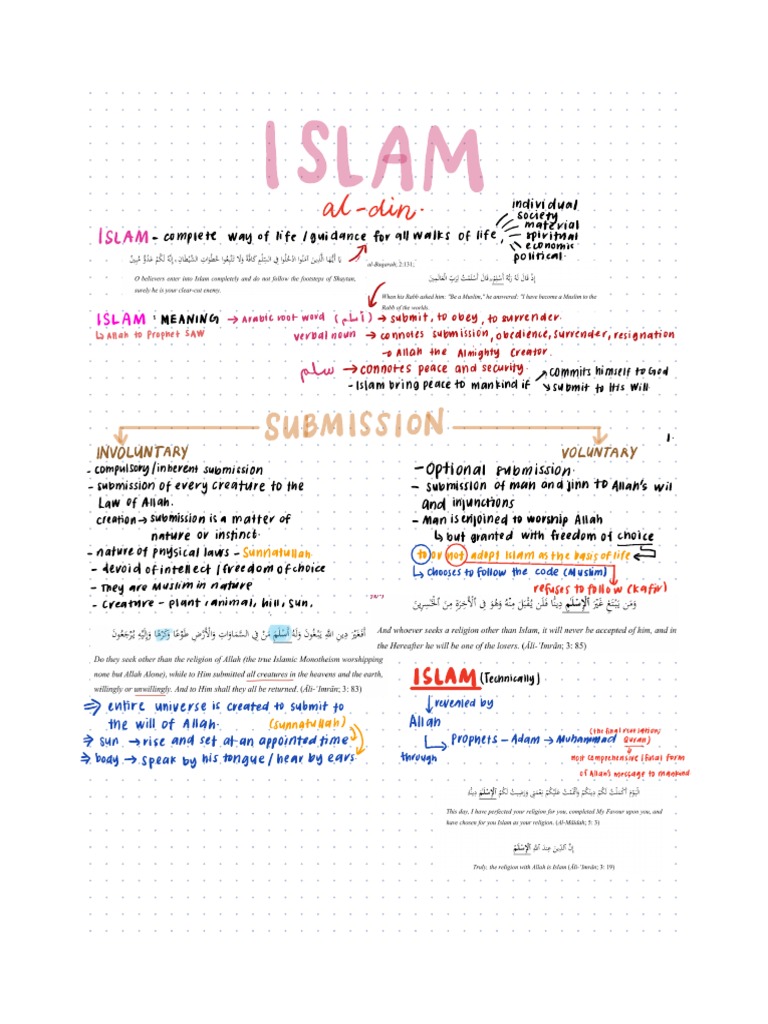 ISLAM
al-din.
ISLAM - complete way of life / guidance for all walks of life
individual
society
material
spiritual
economic
political
يَا أَيُّهَا الَّذِينَ آمَنُوا ادْخُلُوا فِي السِّلْمِ كَافَّةً وَلَا تَتَّبِعُوا خُطُوَاتِ الشَّيْطَانِ ، إِنَّهُ لَكُمْ عَدُوٌّ مُّبِينٌ
al-Baqarah, 2:131;
O believers enter into Islam completely and do not follow the footsteps of Shaytan,
surely he is your clear-cut enemy.
إِذْ قَالَ لَهُ رَبُّهُ أَسْلِمْ، قَالَ أَسْلَمْتُ لِرَبِّ الْعَالَمِينَ
When his Rabb asked him: "Be a Muslim," he answered: "I have become a Muslim to the
Rabb of the worlds.
ISLAM : MEANING → Arabic root word (أسلم) → submit, to obey, to surrender.
↳ Allah to Prophet SAW
verbal noun → connotes submission, obedience, surrender, resignation
→ Allah the Almighty Creator.
سلم → connotes peace and security.
- Islam bring peace to mankind if
commits himself to God
submit to His Will
SUBMISSION
1.
INVOLUNTARY
- compulsory/inherent submission
- submission of every creature to the
Law of Allah.
creation → submission is a matter of
nature or instinct.
- nature of physical laws - Sunnatullah
- devoid of intellect / freedom of choice
- They are Muslim in nature
- creature - plant, animal, hill, sun.
أَفَغَيْرَ دِينِ اللَّهِ يَبْغُونَ وَلَهُ أَسْلَمَ مَنْ فِي السَّمَاوَاتِ وَالْأَرْضِ طَوْعًا وَكَرْهًا وَإِلَيْهِ يُرْجَعُونَ
Do they seek other than the religion of Allah (the true Islamic Monotheism worshipping
none but Allah Alone), while to Him submitted all creatures in the heavens and the earth,
willingly or unwillingly. And to Him shall they all be returned. (Āli-'Imrān; 3: 83)
⇒ entire universe is created to submit to
the will of Allah. (sunnatullah)
⇒ sun → rise and set at an appointed time
⇒ body → speak by his tongue / hear by ears
VOLUNTARY
- Optional submission.
- submission of man and jinn to Allah's wil
and injunctions
- Man is enjoined to worship Allah
↳ but granted with freedom of choice
to or not adopt Islam as the basis of life
↳ chooses to follow the code (Muslim)
refuses to follow (kafir)
وَمَن يَبْتَغِ غَيْرَ الْإِسْلَمِ دِينًا فَلَن يُقْبَلَ مِنْهُ وَهُوَ فِي الْآخِرَةِ مِنَ الْخَسِرِينَ
And whoever seeks a religion other than Islam, it will never be accepted of him, and in
the Hereafter he will be one of the losers. (Āli-'Imrān; 3: 85)
ISLAM (Technically)
revealed by
Allah
through
Prophets - Adam → Muhammad
(the final revelation;
Quran)
most comprehensive (final) form
of Allah's message to mankind
الْيَوْمَ أَكْمَلْتُ لَكُمْ دِينَكُمْ وَأَتْمَمْتُ عَلَيْكُمْ نِعْمَتِي وَرَضِيتُ لَكُمُ الْإِسْلَمَ دِينًا
This day, I have perfected your religion for you, completed My Favour upon you, and
have chosen for you Islam as your religion. (Al-Māidah; 5: 3)
إِنَّ الدِّينَ عِندَ اللَّهِ الْإِسْلَمُ
Truly, the religion with Allah is Islam (Āli-'Imrān; 3: 19)